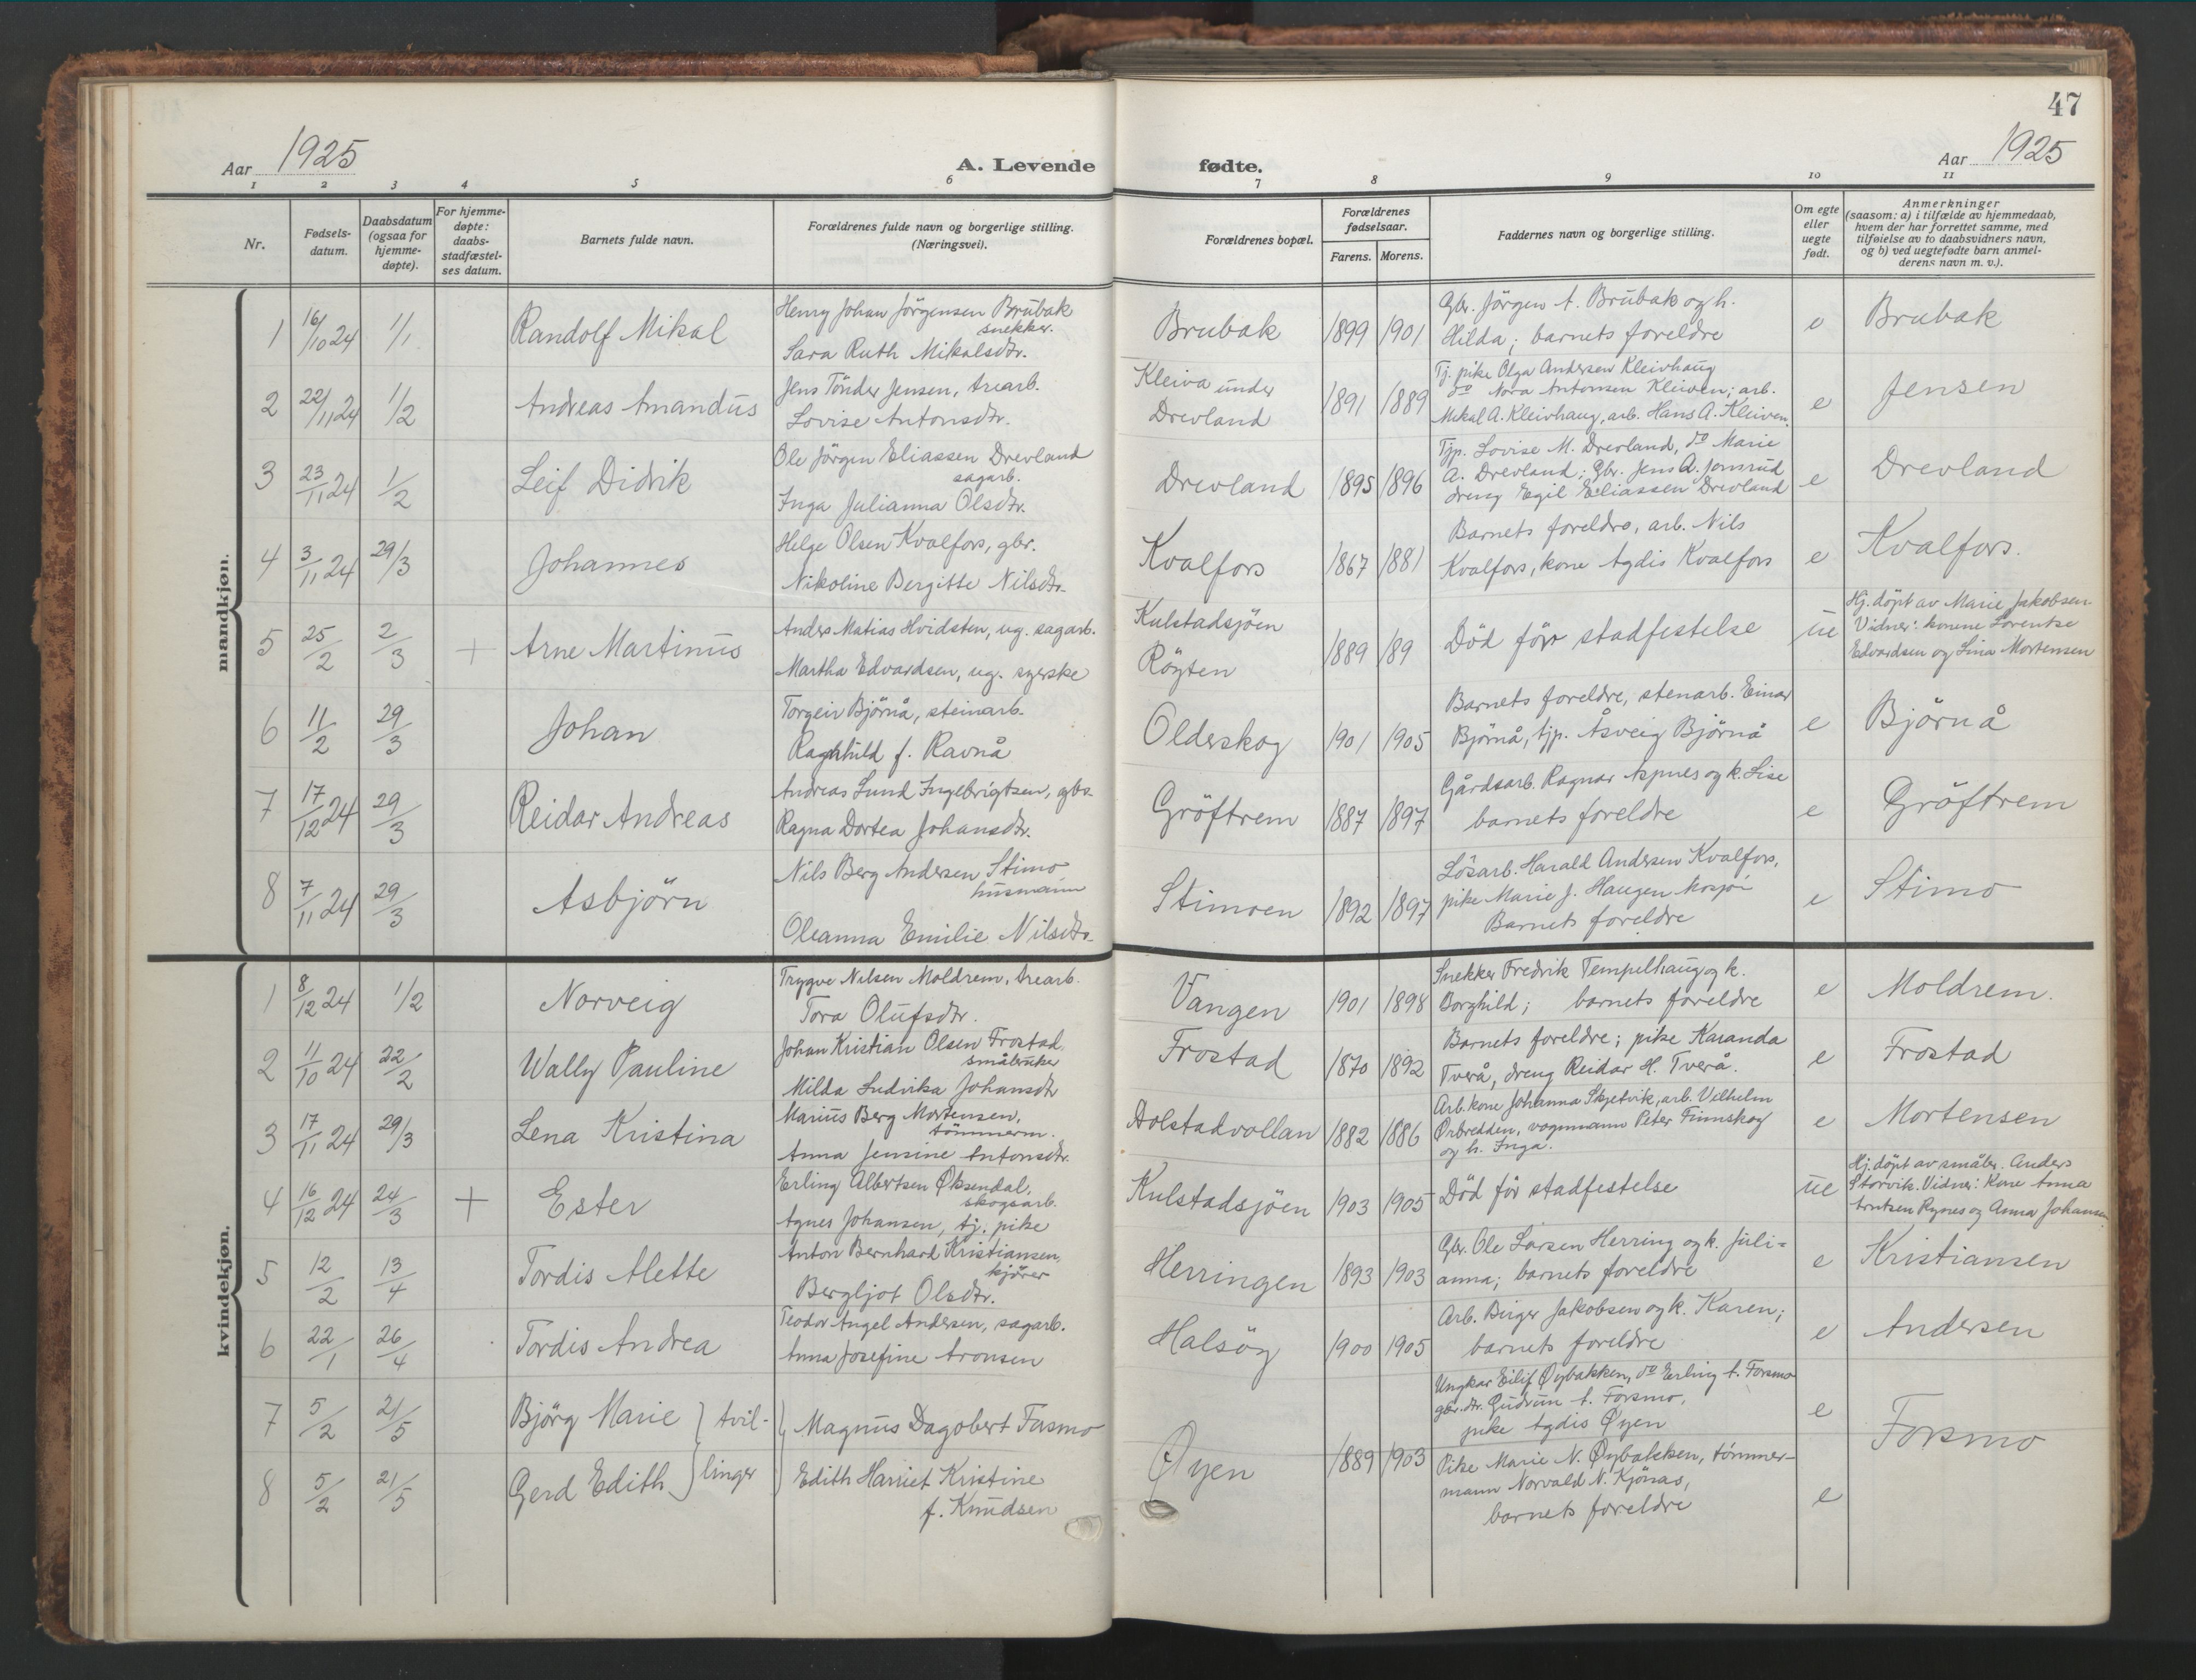 47
Aar 1925
A. Levende
fødte.
Aar 1925
1 2 3 4 5 6 7 8 9 10 11
Nr.
Fødsels-
datum.
Daabsdatum
(ogsaa for
hjemme-
døpte).
For hjemme-
døpte:
daabs-
stadfæstel-
ses datum.
Barnets fulde navn.
Forældrenes fulde navn og borgerlige stilling.
(Næringsvei).
Forældrenes bopæl.
Forældrenes
fødselsaar.
Farens. Morens.
Faddernes navn og borgerlige stilling.
Om egte
eller
uegte
født.
Anmerkninger
(saasom: a) i tilfælde av hjemmedaab,
hvem der har forrettet samme, med
tilføielse av to daabsvidners navn,
og b) ved uegtefødte barn anmel-
derens navn m. v.).
mandkjøn.
1 16/10 24 1/1 Randolf Mikal
Henry Johan Jörgensen Brubak
snekker.
Sara Ruth Mikalsdtr.
Brubak 1899 1901
Gbr. Jörgen A. Brubak og h.
Hilda; barnets foreldre
e Brubak
2 22/11 24 1/2 Andreas Amandus
Jens Tönder Jensen, trearb.
Lovise Antonsdtr.
Kleiva under
Drevland
1891 1889
Tj. pike Olga Andersen Kleivhaug
do Nora Antonsen Kleiven; arb.
Mikal A. Kleivhaug, arb. Hans A. Kleiven.
e Jensen
3 23/11 24 1/2 Leif Didrik
Ole Jörgen Eliassen Drevland
sagarb.
Inga Julianna Olsdtr.
Drevland 1895 1896
Tjp. Lovise M. Drevland, do Marie
A. Drevland; Gbr. Jens A.
dreng Egil Eliassen Drevland
e Drevland
4 3/11 24 29/3 Johannes
Helge Olsen Kvalfors, gbr.
Nikoline Bergitte Nilsdtr.
Kvalfors 1867 1881
Barnets foreldre, arb. Nils
Kvalfors, kone Agdis Kvalfors
e Kvalfors.
5 25/2 2/3 + Arne Martinus
Anders Matias Hvidsten, ug. sagarb.
Martha Edvardsen, ug. syerske
Kulstadsjöen
Röyten
1889 /89
Död för stadfestelse
ue
Hj. döpt av Marie Jakobsen.
Vidner: konene Lorentse
Edvardsen og Lina Mortensen
6 11/2 29/3 Johan
Torgeir Björnå, steinarb.
Ragnhild f. Ravnå
Olderskog 1901 1905
Barnets foreldre, stenarb. Einar
Björnå, tjp. Åsveig Björnå
e Björnå
7 17/12 24 29/3 Reidar Andreas
Andreas Lund Ingebrigtsen, gbr.
Ragna Dortea Johansdtr.
Gröftrem 1887 1897
Gårdsarb. Ragnar Aspnes og k. Lise
barnets foreldre
e Gröftrem
8 7/11 24 29/3 Asbjörn
Nils Berg Andersen Stimo
husmann
Oleanna Emilie Nilsdtr.
Stimoen 1892 1897
Lösarb. Harald Andersen Kvalfors,
pike Marie J. Haugen
Barnets foreldre
e Stimo
kvindekjøn.
1 8/12 24 1/2 Norveig
Trygve Nilsen Moldrem, trearb.
Tora Olufsdtr.
Vangen 1901 1898
Snekker Fredrik Tempelhaug og k.
Borghild; barnets foreldre
e Moldrem.
2 11/10 24 22/2 Wally Pauline
Johan Kristian Olsen Frostad
småbruker
Milda Ludvika Johansdtr
Frostad 1870 1892
Barnets foreldre; pike Karanda
Tverå, dreng Reidar H. Tverå.
e Frostad
3 17/11 24 29/3 Lena Kristina
Marius Berg Mortensen,
tömmerm.
Anna Jensine Antonsdtr.
Dolstadvollan 1882 1886
Arb. kone Johanna Skjetvik, arb. Vilhelm
Ørbredden, vognmann Peter Finnskog
og h. Inga.
e Mortensen
4 16/12 24 24/3 + Ester
Erling Albertsen Øksendal,
skogsarb.
Agnes Johansen, tj. pike
Kulstadsjöen 1903 1905
Död för stadfestelse
ue
Hj. döpt av småbr. Anders
Storvik. Vidner: Kone Anna
Arntsen Rynes og Anna Johansen
5 12/2 13/4 Tordis Alette
Anton Bernhard Kristiansen,
kjörer
Bergljot Olsdtr.
Herringen 1893 1903
Gbr. Ole Larsen Herring og k. Juli=
anna; barnets foreldre
e Kristiansen
6 22/1 26/4 Tordis Andrea
Teodor Angel Andersen, sagarb.
Anna Josefine Aronsen
Halsöy 1900 1905
Arb. Birger Jakobsen og k. Karen;
barnets foreldre
e Andersen
7 5/2 21/5 Björg Marie } tvil-
Magnus Dagobert Forsmo
Ungkar Eilif Øybakken, do Erling A. Forsmo
gbr. dtr. Gudrun A. Forsmo,
pike Agdis Øyen
e Forsmo
8 5/2 21/5 Gerd Edith } linger
Edith Harriet Kristine
f. Knudsen
Øyen 1889 1903
Pike Marie N. Øybakken, tömmer-
mann Norvald N. Kjönås,
barnets foreldre
e